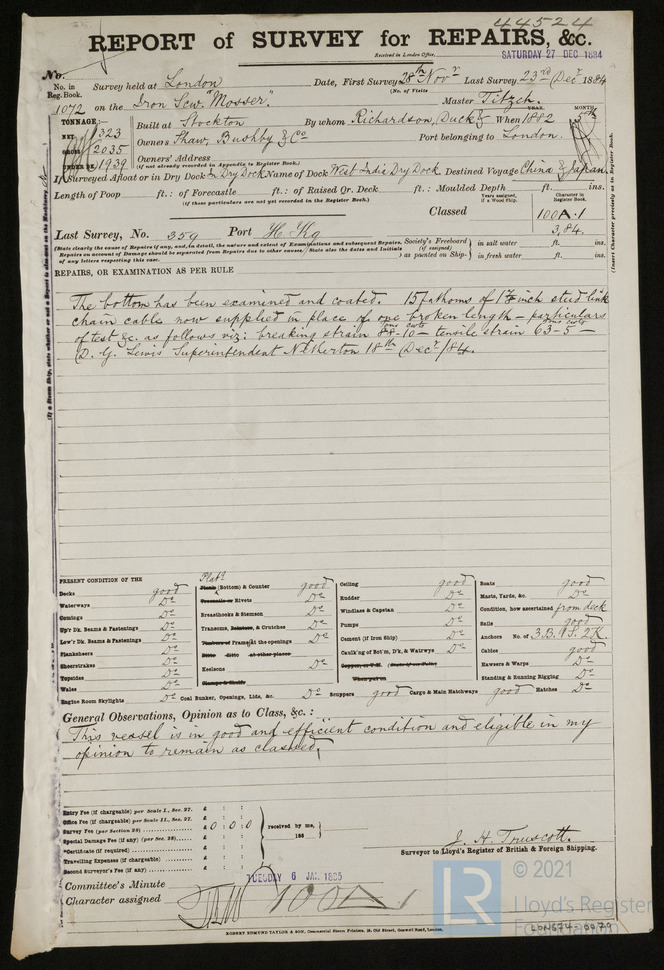 44524
REPORT of SURVEY for REPAIRS, &c.
Received in London Office,
SATURDAY 27 DEC 1884
No.
No. in Reg. Book.
Survey held at London
Date, First Survey 28th Novr Last Survey 23rd Decr 1884
(No. of Visits
1072 on the Iron Scw. "Mosser".
Master Titzck.
TONNAGE:—
NET 1323
GROSS 2035
UNDER DK. 1939
Built at Stockton By whom Richardson, Duck & When YEAR. 1882 MONTH. 5th
Owners Shaw, Bushby & Co Port belonging to London.
Owners' Address
(If not already recorded in Appendix to Register Book.)
If Surveyed Afloat or in Dry Dock In Dry Dock Name of Dock West India Dry Dock Destined Voyage China & Japan
Length of Poop ft.: of Forecastle ft.: of Raised Qr. Deck ft.: Moulded Depth ft. ins.
(If these particulars are not yet recorded in the Register Book.)
Years assigned, if a Wood Ship.
Character in Register Book.
Classed 100A.1
3,84.
Last Survey, No. 359 Port H'Kg
(State clearly the cause of Repairs if any, and, in detail, the nature and extent of Examinations and subsequent Repairs.
Repairs on account of Damage should be separated from Repairs due to other causes. State also the dates and Initials
of any letters respecting this case.
Society's Freeboard (if assigned) as painted on Ship- in salt water ft. ins.
in fresh water ft. ins.
REPAIRS, OR EXAMINATION AS PER RULE
The bottom has been examined and coated. 15 fathoms of inch stud link
chain cable now supplied in place of one broken length — particulars
of test &c. as follows viz: breaking strain 88-10 — tensile strain 63-5 —
D. G. Lewis Superintendent Netherton 18th Decr/84.
PRESENT CONDITION OF THE
Decks good
Waterways Do
Comings Do
Up'r Dk. Beams & Fastenings Do
Low'r Dk. Beams & Fastenings Do
Plankshears Do
Sheerstrakes Do
Topsides Do
Wales Do
Engine Room Skylights Do
Plate
Plank (Bottom) & Counter good
Treenails or Rivets Do
Breasthooks & Stemson Do
Transoms, Pointers, & Crutches Do
Timbers of Frame at the openings Do
Ditto Ditto at other places
Keelsons Do
Clamps & Shelfs
Coal Bunker, Openings, Lids, &c. Do
Ceiling good
Rudder Do
Windlass & Capstan Do
Pumps Do
Cement (if Iron Ship) Do
Caulk'ng of Bot'm, D'k, & Watrwys Do
Scuppers good Cargo & Main Hatchways good Hatches Do
Boats good
Masts, Yards, &c. Do
Condition, how ascertained from deck
Sails good
Anchors No. of 3.B. 1S. 2K.
Cables good
Hawsers & Warps Do
Standing & Running Rigging Do
General Observations, Opinion as to Class, &c. :
This vessel is in good and efficient condition and eligible in my
opinion to remain as classed,
Entry Fee (if chargeable) per Scale I., Sec. 27.
Office Fee (if chargeable) per Scale II., Sec. 27.
Survey Fee (per Section 28) £ 0 : 0 : 0
Special Damage Fee (if any) (per Sec. 28)
*Certificate (if required)
Travelling Expenses (if chargeable)
Second Surveyor's Fee (if any)
received by me,
188
J. H. Truscott.
Surveyor to Lloyd's Register of British & Foreign Shipping.
Committee's Minute TUESDAY 6 JAN. 1885
Character assigned 100A1
ROBERT EDMUND TAYLOR & SON, Commercial Steam Printers, 19, Old Street, Goswell Road, London.
LR
© 2021
Lloyd's Register
Foundation
LON674-0070